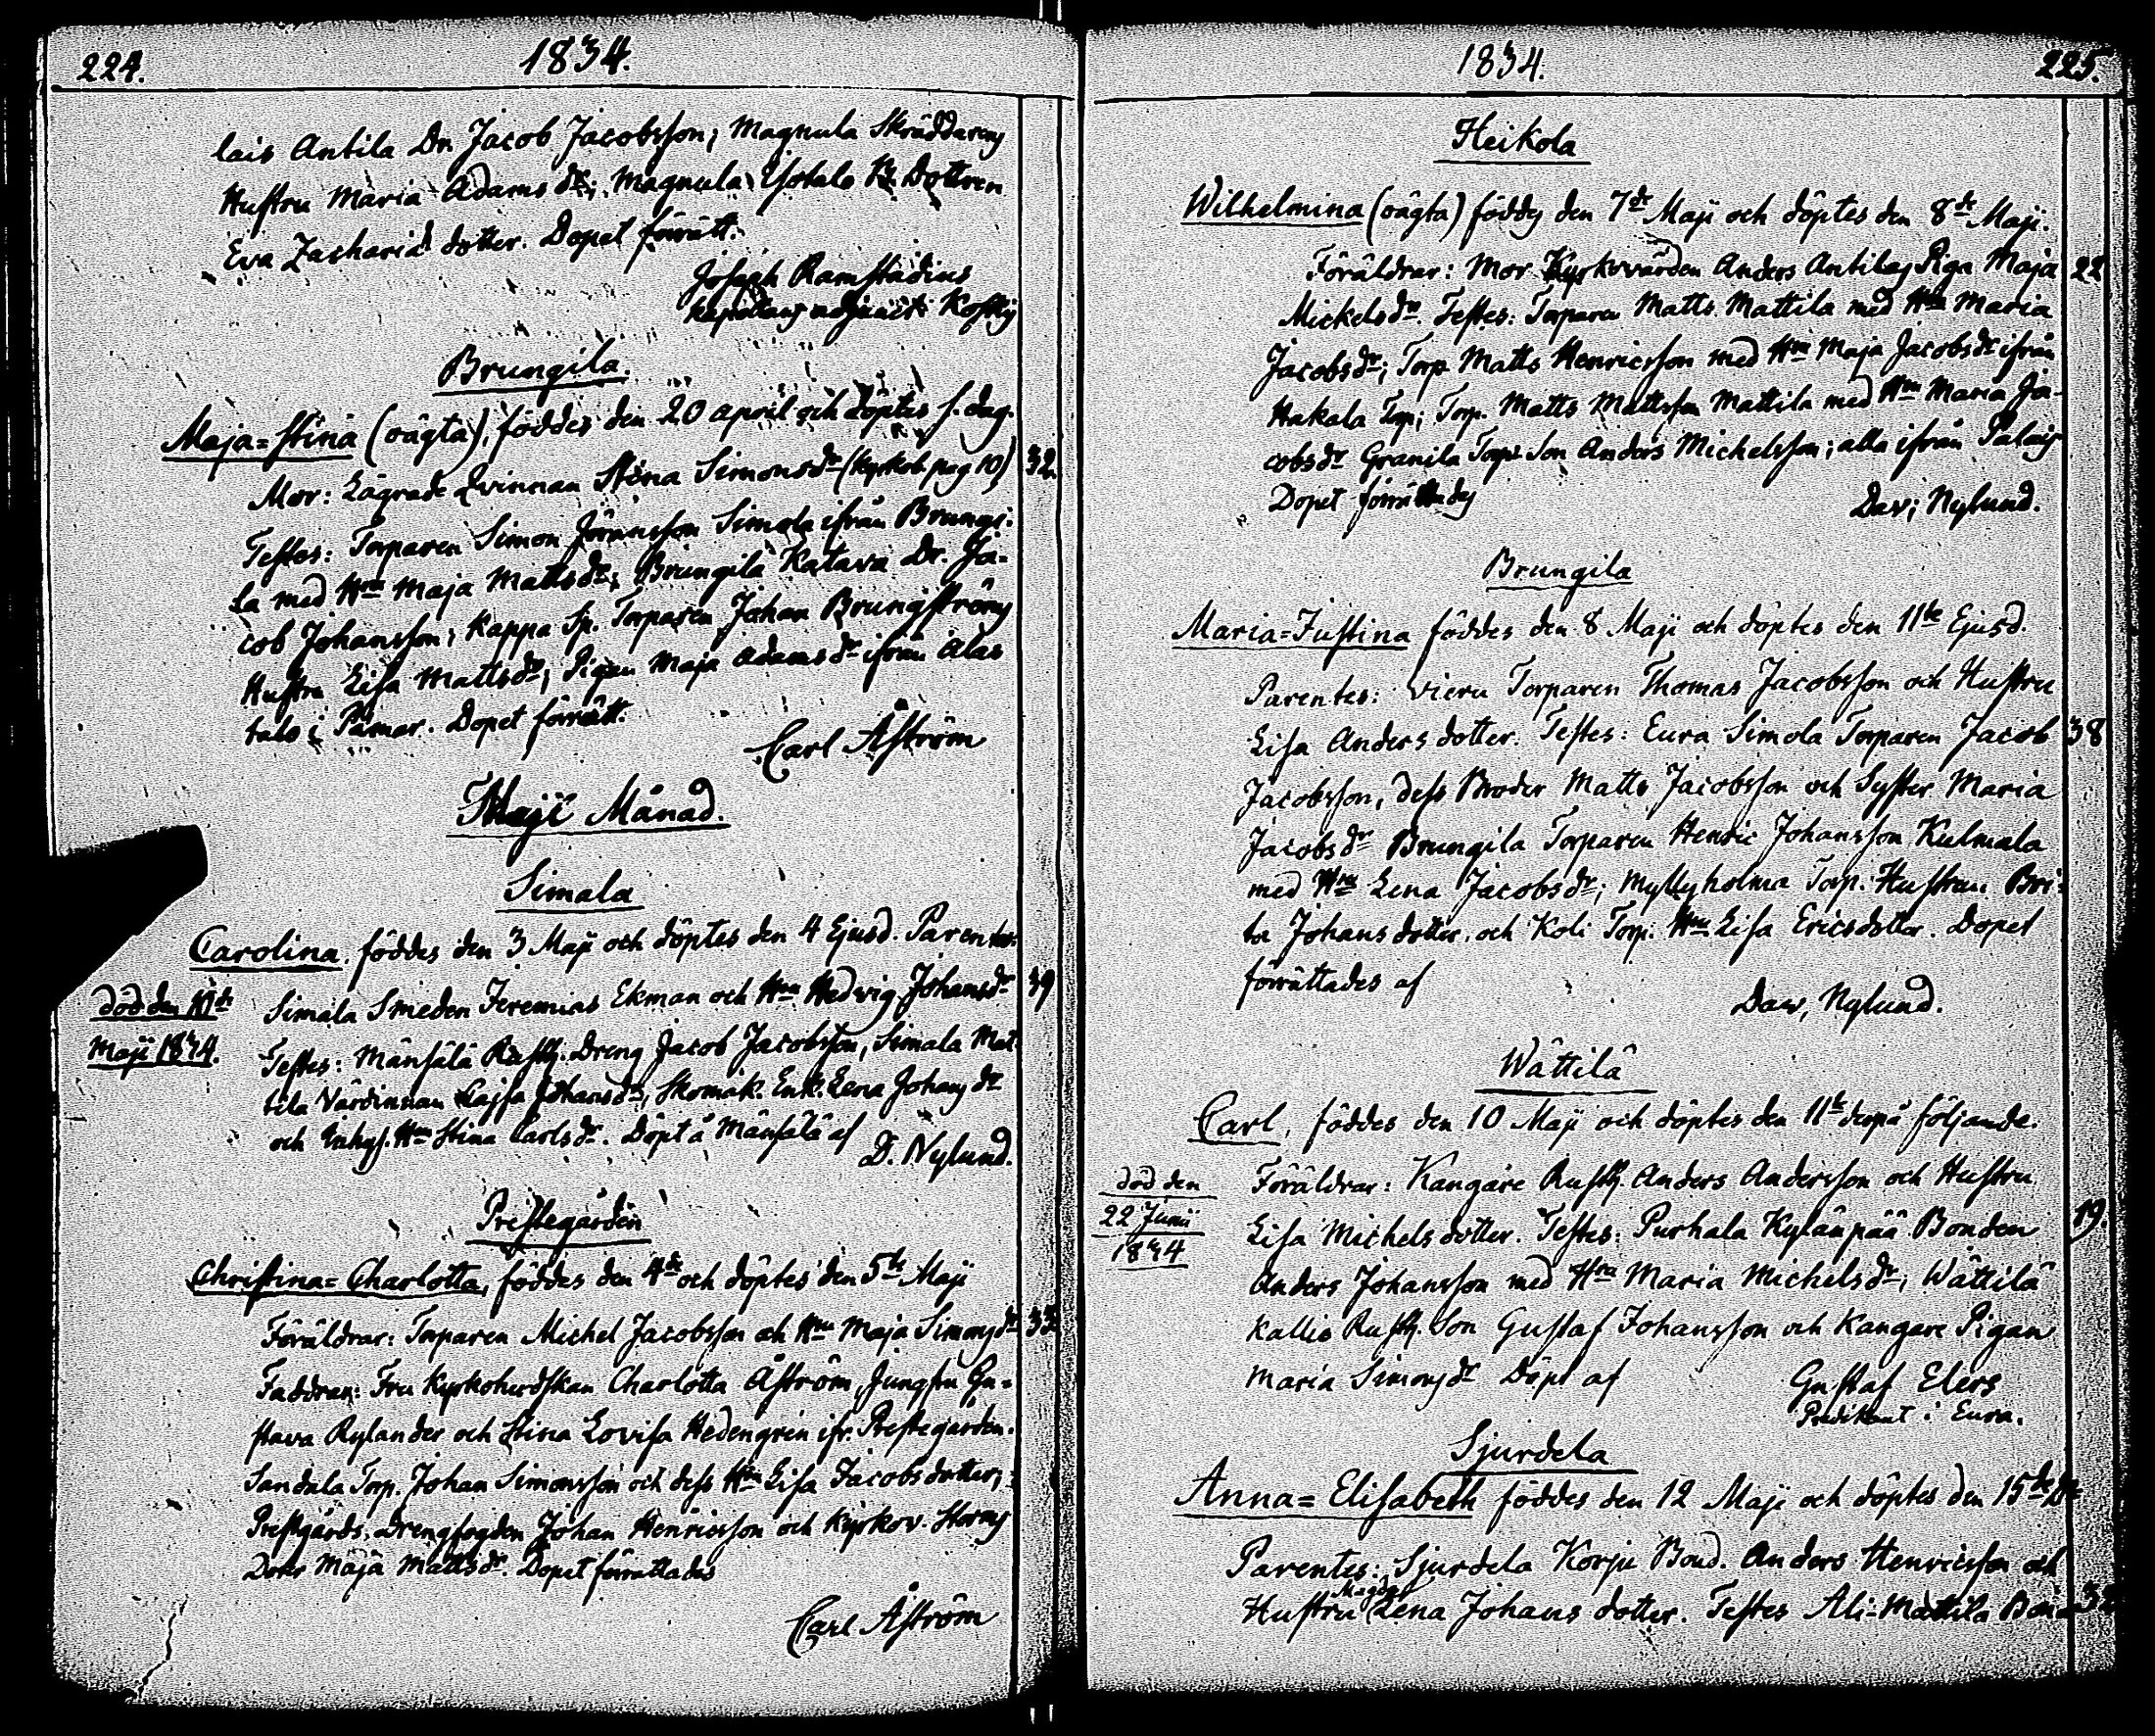 224.
1834.
lais Antila Dn Jacob Jacobsson; Magnula Skräddarens
Hustru Maria Adams dr; Magnula Dottren
Eva Zacharid dotter. Dopet förrätt.
Joseph Ramstadius
Kapellans adjunct i
Brungila.
Maja=Stina (oägta), föddes den 20 april och döptes s. dag.
Mor: Lägrade Qvinnan Stina Simonsdr (Kyrkob. pag 10)
32.
Testes: Torparen Simon Simola ifrån Brungi-
la med Hru Maja Mattsdr; Brungila Katava Dr. Ja-
cob Johansson; Kappa Sp. Torparen Johan Brungströms
Hustru Lisa Mattsdr; Pigan Maja Adamsdr ifrån Alas
talo i Pämar. Dopet förrätt.
Carl Åström
Maji Månad.
Simala
Carolina föddes den 3 Maji och döptes den 4 Ejusd. Parentes:
död den
Maji 1834.
Simala Smeden Jeremias Ekman och Hru Hedwig Johansdr
39
Testes: Mänsälä Rusth. Dreng Jacob Jacobsson, Simala Mat-
tila Värdinnan Cajsa Johansdr, Skomak. Enk. Lena Johansdr
och Inhys. Hru Stina Carlsdr. Döpt å Mänsälä af
D. Nylund.
Prestegården
Christina=Charlotta, föddes den 4de och döptes den 5te Maji
Föräldrar: Torparen Michel Jacobsson och Hru Maja Simonsdr
33
Faddrar: Fru Kyrkoherdskan Charlotta Åström, Jungfru Gu=
stava Rylander och Stina Lovisa Hedengren ifr. Prestegården.
Sandula Torp. Johan Simonsson och dess Hru Lisa Jacobs dotter;
Prestgårds. Drengfogden Johan Henricsson och Kyrkov. Storms
Doter Maja Mattsdr. Dopet förrättades
Carl Åström
1834.
225.
Heikola
Wilhelmina (oägta) föddes den 7de Maji och döptes den 8de Maji.
Föräldrar: Mor Kyrkovärden Anders Antilas Piga Maja
22
Mickelsdr. Testes: Torparen Matts Mattila med Hru Maria
Jacobsdr; Torp. Matts Henricsson med Hru Maja Jacobsdr ifrån
Hakala Torp; Torp. Matts Mattsson Mattila med Hru Maria Ja-
cobsdr Granila Torp. Son Anders Michelsson; alla ifrån Palais
Dopet förrättades
Dav; Nylund.
Brungila
Maria=Justina föddes den 8 Maji och döptes den 11te Ejusd.
Parentes: Vieru Torparen Thomas Jacobsson och Hustru
Lisa Anders dotter. Testes: Eura Simola Torparen Jacob
38
Jacobsson, dess Broder Matts Jacobsson och Syster Maria
Jacobsdr Brungila Torparen Henric Johansson Kulmala
med Hru Lena Jacobsdr; Myllyholma Torp. Hustrun Bri-
ta Johans dotter, och Koli Torp. Hru Lisa Ericsdotter. Dopet
förrättades af
Dav, Nylund.
Wättilä
Carl, föddes den 10 Maji och döptes den 11te derpå följande.
död den
22 Junii
1834
Föräldrar: Kangare Rusth. Anders Andersson och Hustru
Lisa Michels dotter. Testes: Purhala Kylänpää Bonden
19.
Anders Johansson med Hru Maria Michelsdr; Wättilä
Kallio Rusth. Son Gustaf Johansson och Kangare Pigan
Maria Simonsdr Döpt af
Gustaf Elers
Predikant i Eura.
Sjurdela
Anna=Elisabeth föddes den 12 Maji och döptes den 15de
Parentes: Sjurdela Korju Bond. Anders Henricsson och
Hustru Magda Lena Johans dotter. Testes Ali-Mattila Bon-